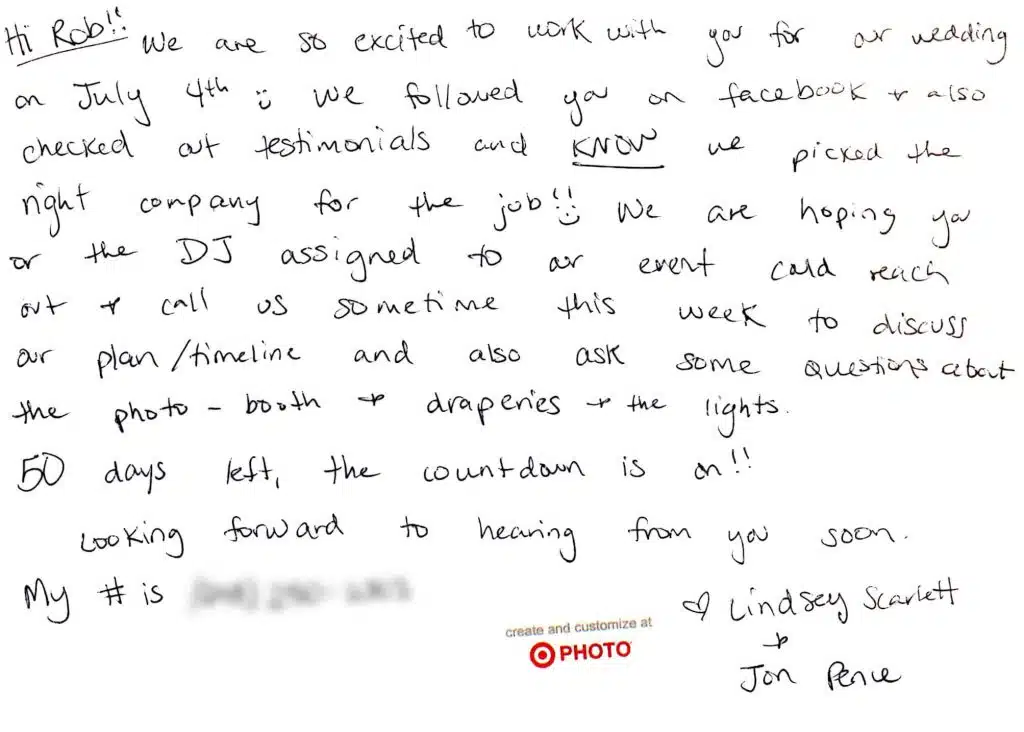 Hi Rob!! We are so excited to work with you for our wedding
on July 4th :) We followed you on facebook + also
checked out testimonials and KNOW we picked the
right company for the job!! :) We are hoping you
or the DJ assigned to our event could reach
out + call us sometime this week to discuss
our plan/timeline and also ask some questions about
the photo-booth + draperies + the lights.
50 days left, the countdown is on!!
Looking forward to hearing from you soon.
My # is
♡ Lindsey Scarlett
+
Jon Pence
create and customize at
PHOTO